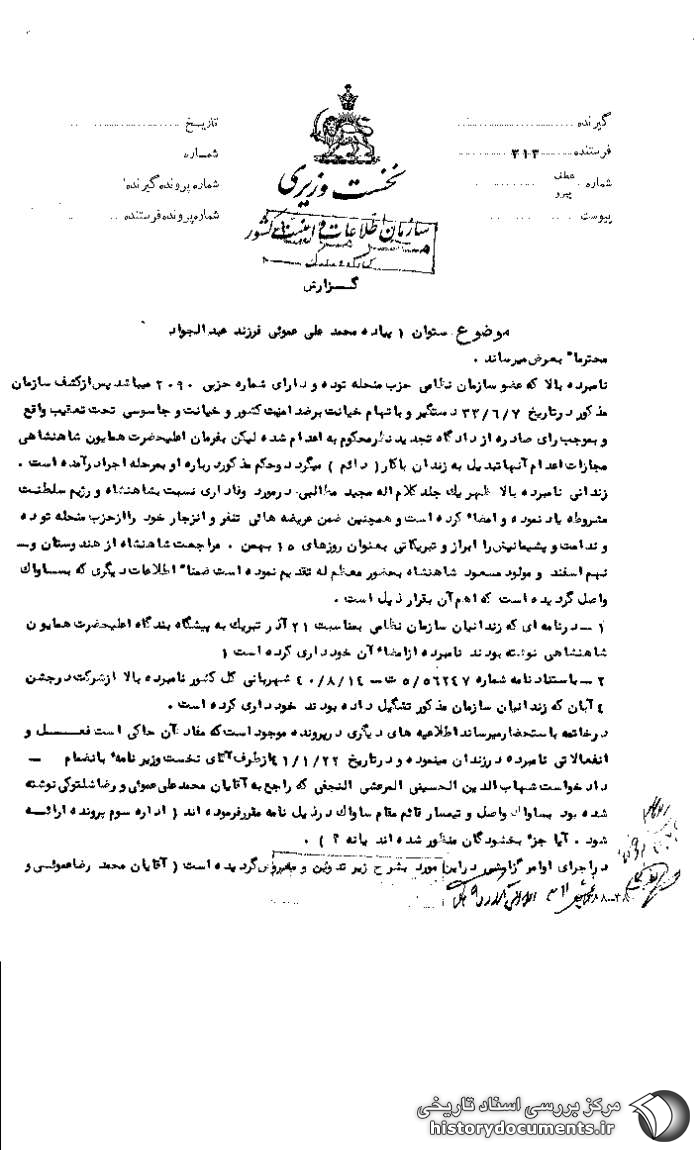 گیرنده
تاریخ
فرستنده ۳۱۳
شماره
شماره عطف پیرو
شماره پرونده گیرنده
پیوست
شماره پرونده فرستنده
نخست وزیری
سازمان اطلاعات و امنیت کشور
گزارش
موضوع ستوان ۱ پیاده محمد علی عموئی فرزند عبدالجواد
محترماً بعرض میرساند .
نامبرده بالا که عضو سازمان نظامی حزب منحله توده و دارای شماره حزبی ۲۰۹۰ میباشد پس از کشف سازمان
مذکور در تاریخ ۳۳/۶/۷ دستگیر و باتهام خیانت برضد امنیت کشور و خیانت و جاسوسی تحت تعقیب واقع
و بموجب رای صادره از دادگاه تجدید نظر محکوم به اعدام شده لیکن بفرمان اعلیحضرت همایون شاهنشاهی
مجازات اعدام آنها تبدیل به زندان باکار ( دائم ) میگردد و حکم مذکور درباره او بمرحله اجرا درآمده است .
زندانی نامبرده بالا ظهر یك جلد کلام اله مجید مطالبی در مورد وفاداری نسبت بشاهنشاه و رژیم سلطنت
مشروطه یاد نموده و امضاء کرده است و همچنین ضمن عریضه هائی تنفر و انزجار خود را از حزب منحله توده
و ندامت و پشیمانیش را ابراز و تبریکاتی بعنوان روزهای ۱۵ بهمن . مراجعت شاهنشاه از هندوستان و ـ
نهم اسفند و مولود مسعود شاهنشاه بحضور معظم له تقدیم نموده است ضمناً اطلاعات دیگری که بساواك
واصل گردیده است که اهم آن بقرار ذیل است .
۱ ـ در نامه ای که زندانیان سازمان نظامی بمناسبت ۲۱ آذر تبریك به پیشگاه بندگاه اعلیحضرت همایون
شاهنشاهی نوشته بودند نامبرده از امضاء آن خودداری کرده است (
۲ ـ باستناد نامه شماره ۵/۵۶۲۴۷ ت ـ ۴۰/۸/۱۴ شهربانی کل کشور نامبرده بالا از شرکت در جشن
۴ آبان که زندانیان سازمان مذکور تشگیل داده بودند خودداری کرده است .
درخاتمه باستحضار میرساند اطلاعیه های دیگری در پرونده موجود است که مفاد آن حاکی است فعـل و
انفعالاتی نامبرده در زندان مینموده و در تاریخ ۴۱/۱/۲۲ از طرف آقای نخست وزیر نامه بانضمام ـ
دادخواست شهاب الدین الحسینی المرعشی النجفی که راجع به آقایان محمد علی عموئی و رضا شلتوکی نوشته
شده بود بساواك واصل و تیمسار قائم مقام ساواك در ذیل نامه مقرر فرموده اند ( اداره سوم پرونده ارائه
شود . آیا جزء بخشودگان منظور شده اند یا نه ؟ ) .
در اجرای اوامر گزارشی در این مورد بشرح زیر تدوین و معروض گردیده است ( آقایان محمد رضا عموئی و
مرکز بررسی اسناد تاریخی
historydocuments.ir